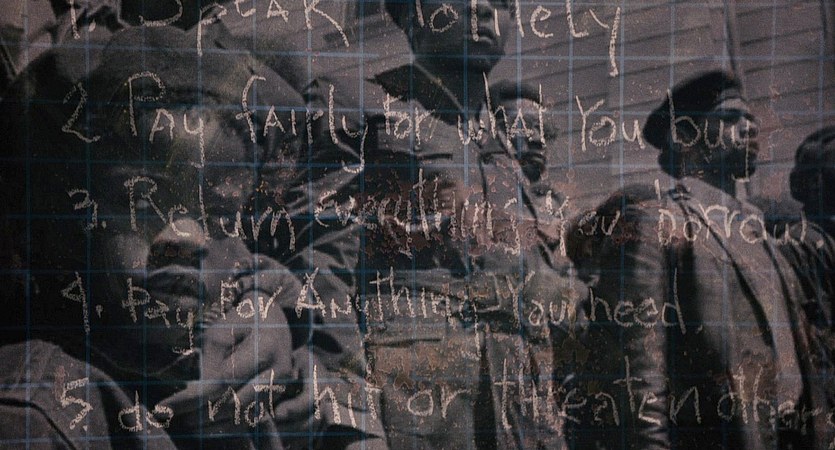 1. Speak
2. Pay fairly for what You buy
3. Return everything You borrow.
4. Pay For Anything You need.
5. do not hit or threaten others